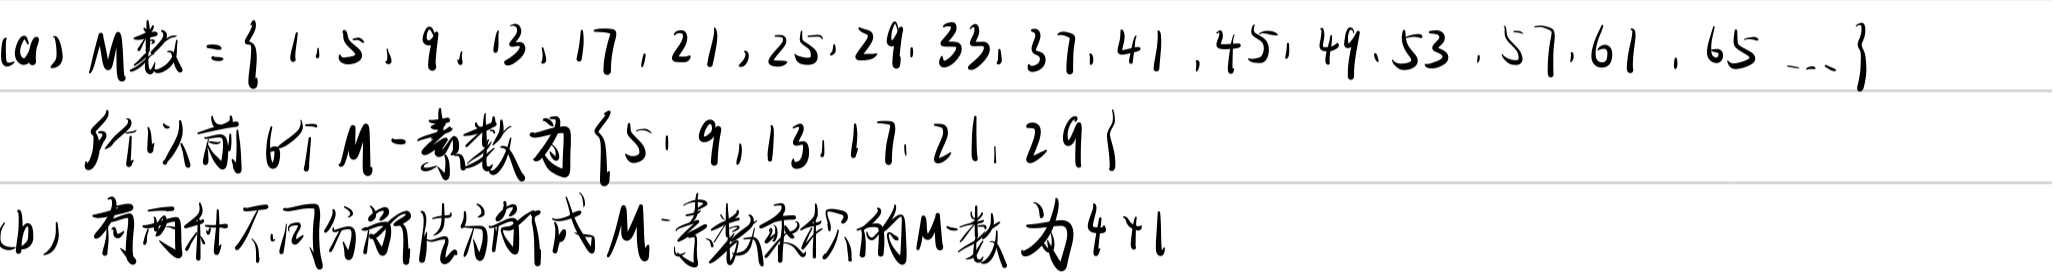 (a) M数 = { 1, 5, 9, 13, 17, 21, 25, 29, 33, 37, 41, 45, 49, 53, 57, 61, 65 ... }
所以前6个 M-素数为 {5, 9, 13, 17, 21, 29}
(b) 有两种不同分解法分解成 M-素数乘积的M-数为 441